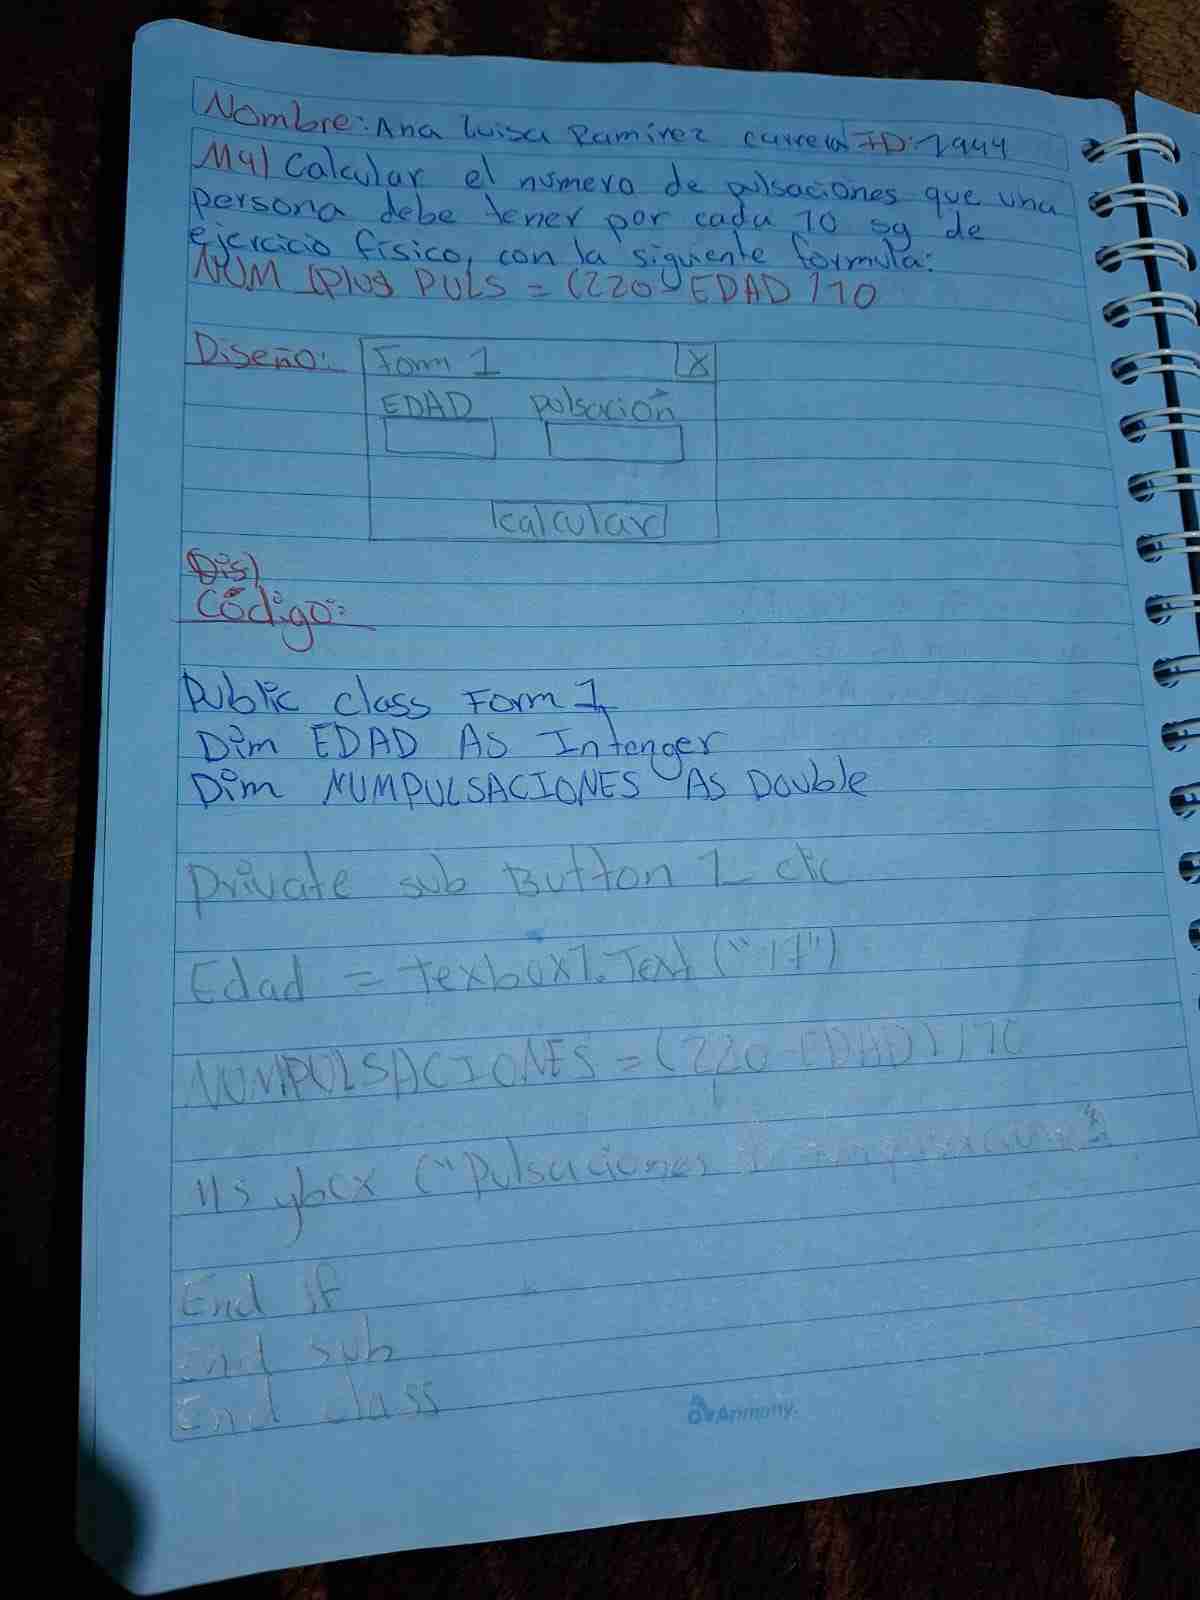 Nombre: Ana Luisa Ramirez carrera ID: 1944
M4) Calcular el número de pulsaciones que una
persona debe tener por cada 10 sg de
ejercicio físico, con la siguiente formula:
NUM PULS = (220 - EDAD)10
Diseño:
Form 1 X
EDAD pulsación
calcular
Dis)
Código:
Public class Form 1
Dim EDAD As Intenger
Dim NUMPULSACIONES As Double
Private sub Button 1_ clic
Edad = texbox1.Text ("17")
NUMPULSACIONES = (220 - EDAD) / 10
Msgbox ("Pulsaciones
End if
End sub
End class
Armony.